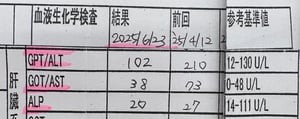 血液生化学検査 結果 前回 参考基準値
2025/6/23 25/4/12
GPT/ALT 102 210 12-130 U/L
肝 GOT/AST 38 73 0-48 U/L
臓 ALP 20 27 14-111 U/L